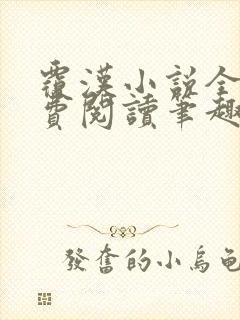 覆漢小說全
費閱讀筆趣
發奮的小烏龜